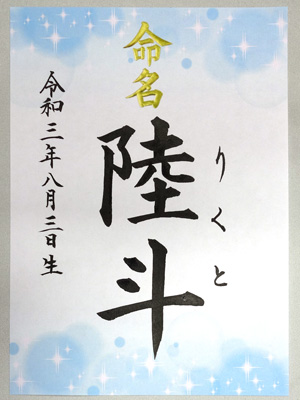 命名
りくと
陸斗
令和三年八月三日生